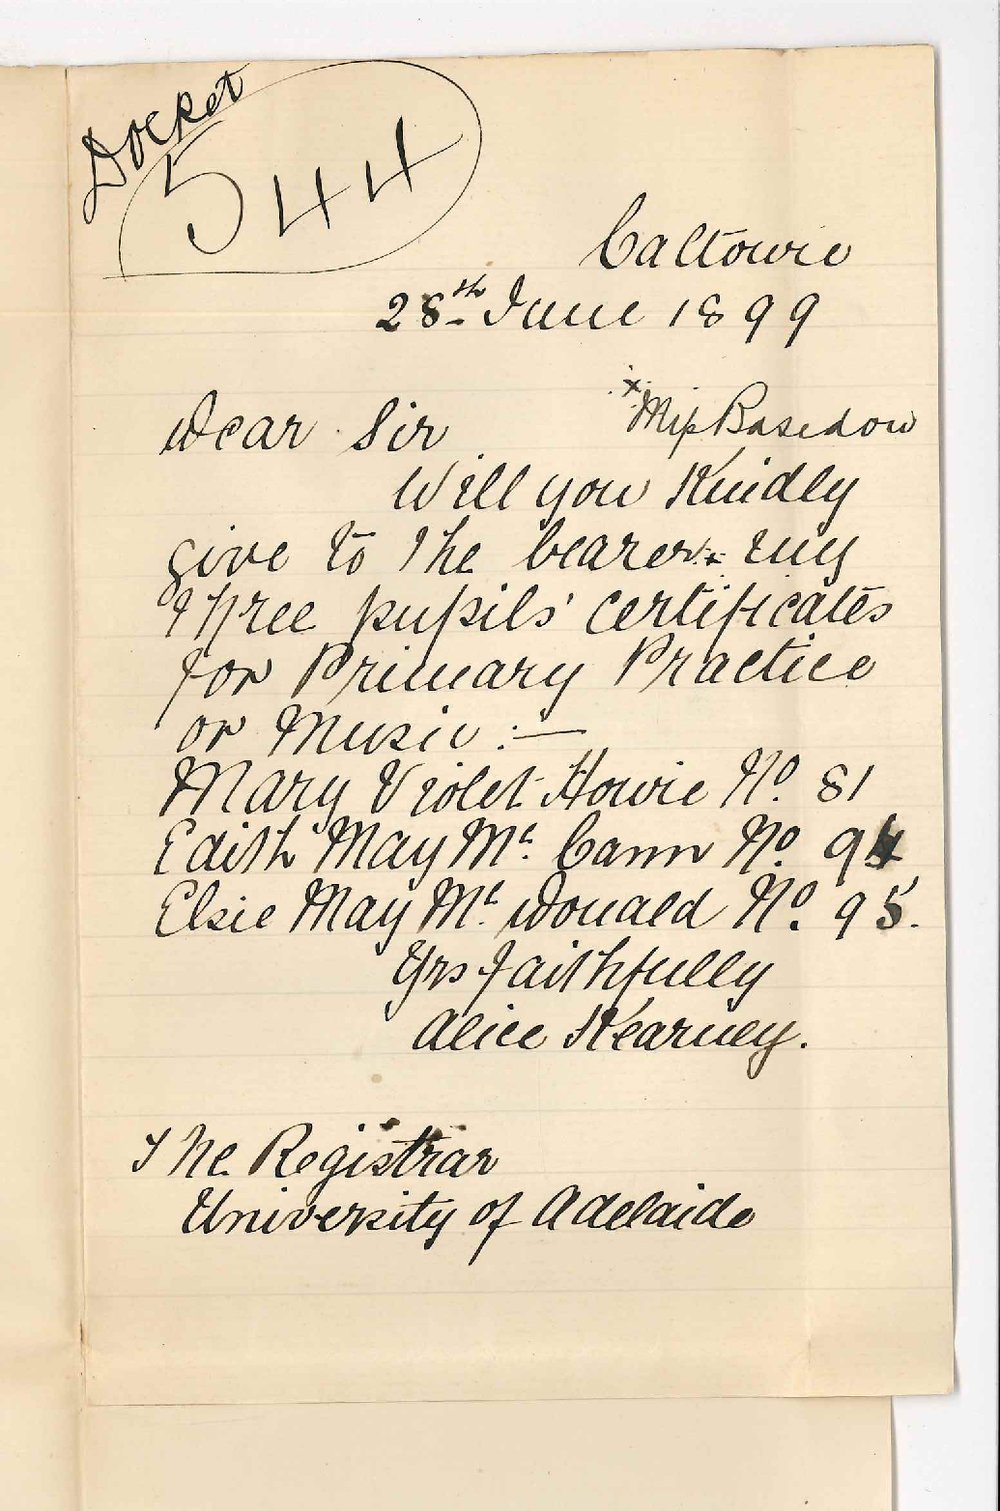 Docket
544
Caltowie
28th June 1899
Dear Sir
x Miss Basedow
Will you Kindly
give to the bearer x my
three pupils' certificates
for Primary Practice
or Music :—
Mary Violet Howie No. 81
Edith May Mc. Cann No. 94
Elsie May Mc. Donald No. 95.
Yrs faithfully
Alice Kearney.
The Registrar
University of Adelaide